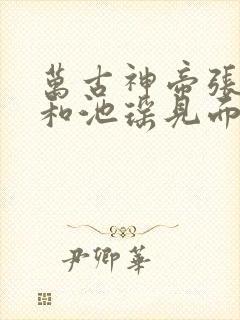 萬古神帝張
和池瑤見而
尹卿華